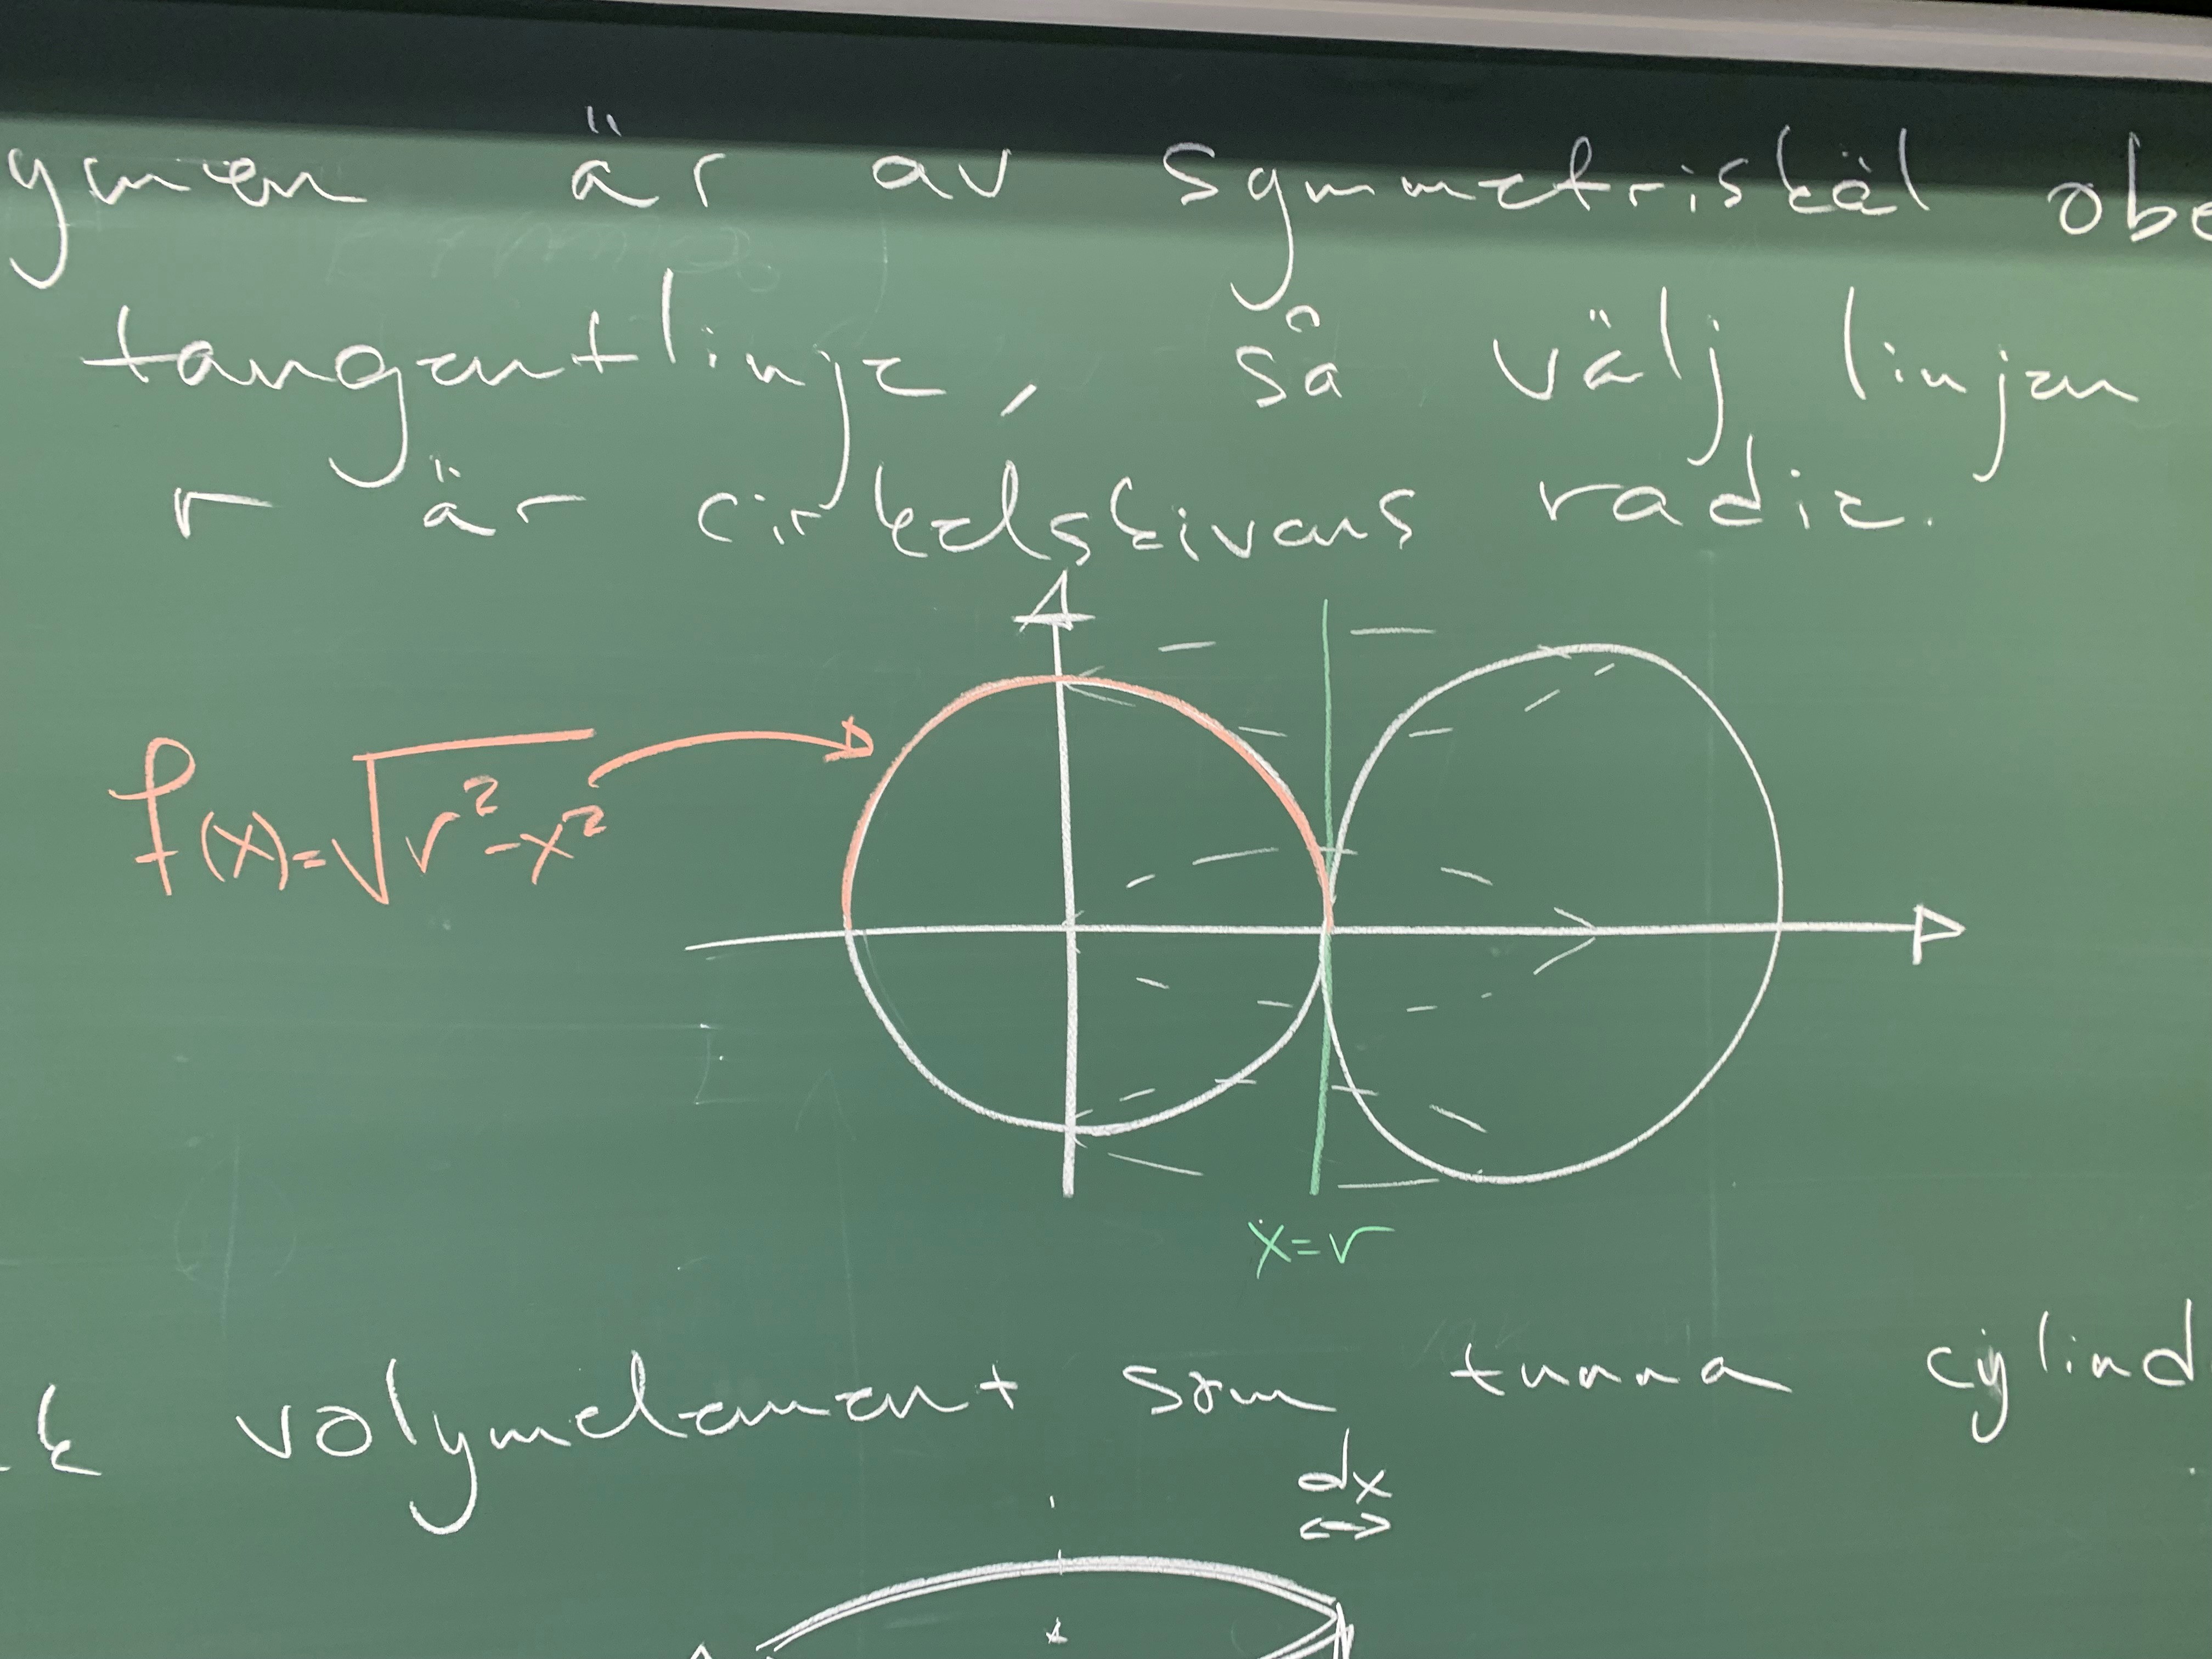 ymen är av symmetriskäl obe
tangentlinje, så välj linjen
r är cirkelskivans radie.
f(x)=√r²-x²
x=r
k volymelement som tunna cylind
dx